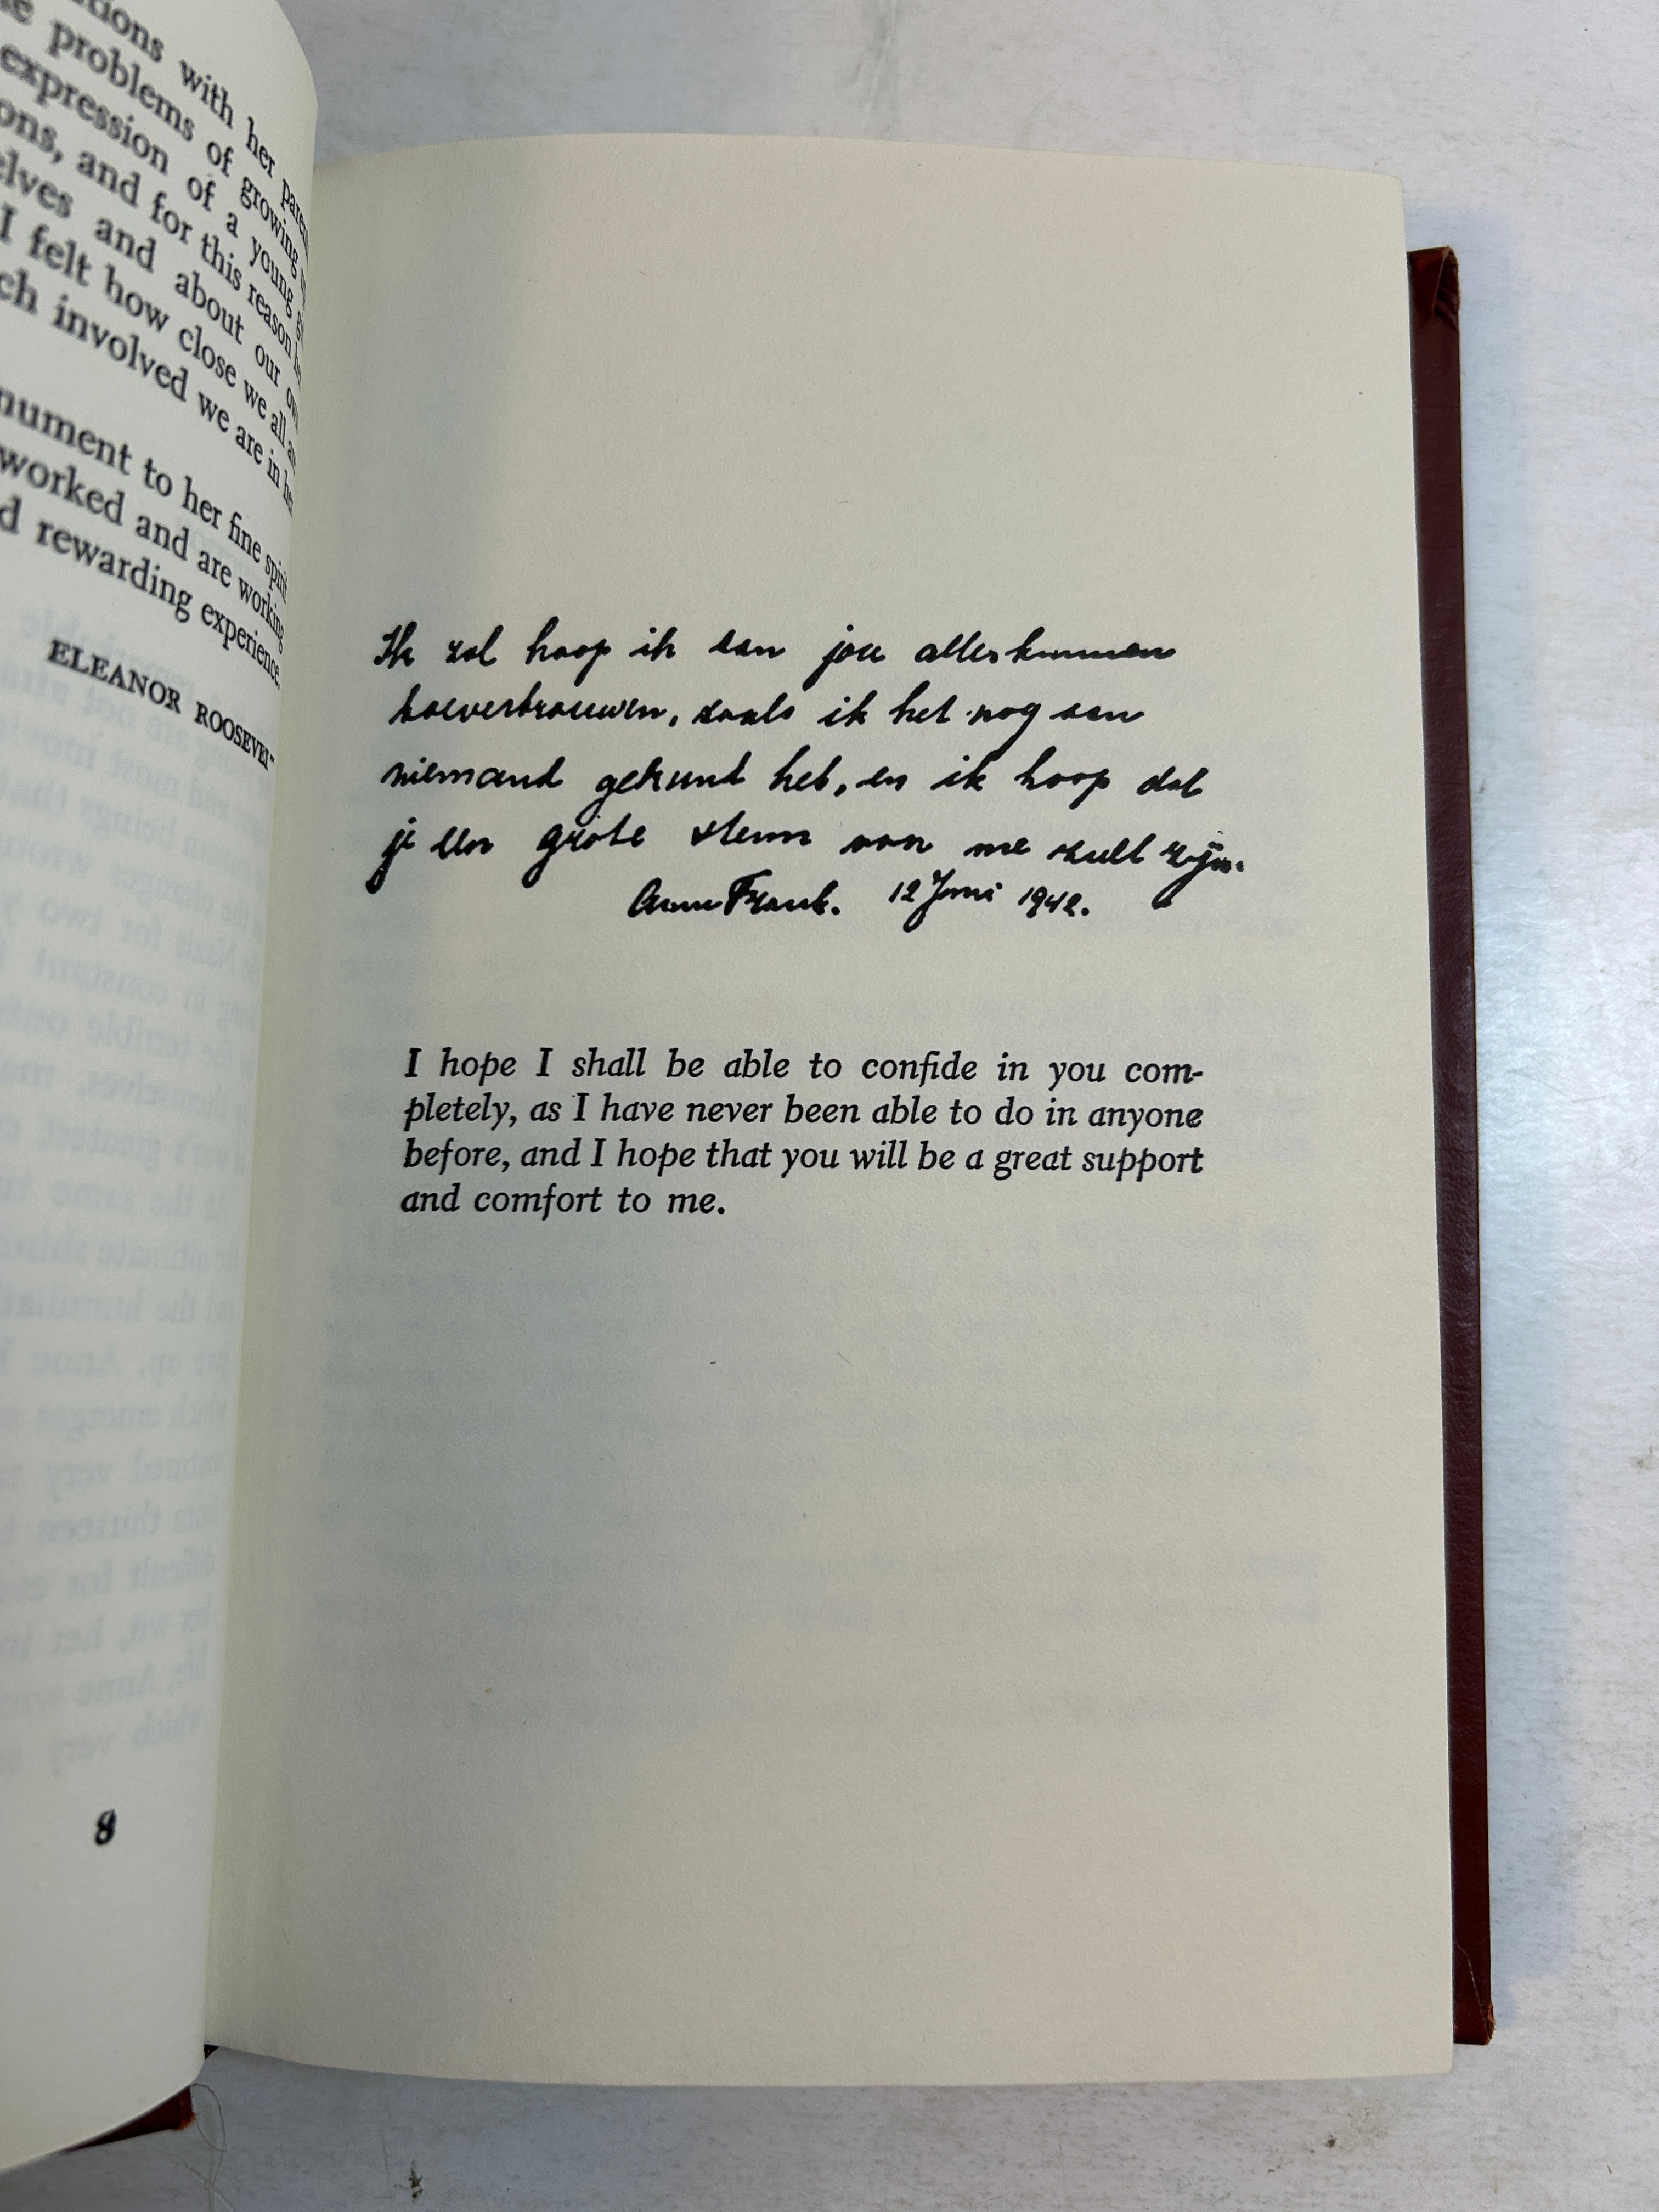 tions with her
e problems of growing
expression of a young
ons, and for this reason
elves and about our
I felt how close we all
ch involved we are in
nument to her fine spirit
worked and are working
d rewarding experience.
ELEANOR ROOSEVELT
8
Ik zal hoop ik aan jou alles kunnen
toevertrouwen, zoals ik het nog aan
niemand gekund heb, en ik hoop dat
je een grote steun voor me zult zijn.
Anne Frank. 12 Juni 1942.
I hope I shall be able to confide in you com-
pletely, as I have never been able to do in anyone
before, and I hope that you will be a great support
and comfort to me.